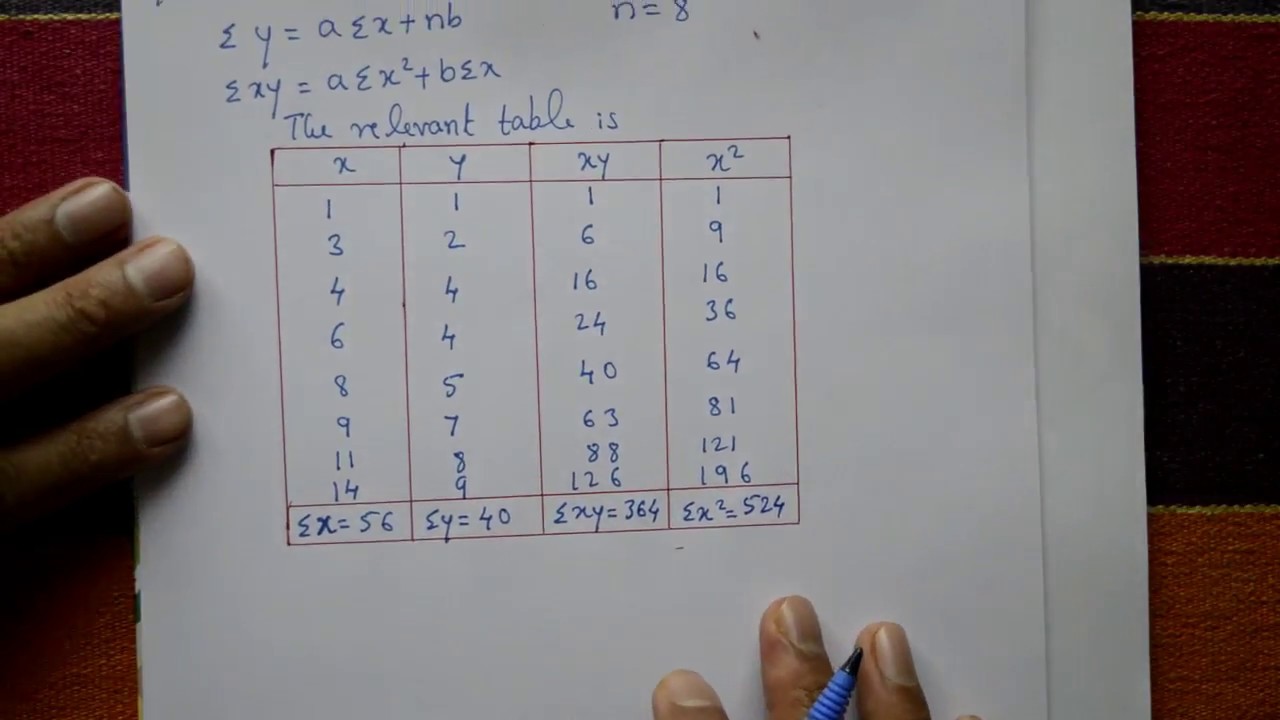 Σy = aΣx + nb n = 8
Σxy = aΣx² + bΣx
The relevant table is
x y xy x²
1 1 1 1
3 2 6 9
4 4 16 16
6 4 24 36
8 5 40 64
9 7 63 81
11 8 88 121
14 9 126 196
Σx = 56 Σy = 40 Σxy = 364 Σx² = 524